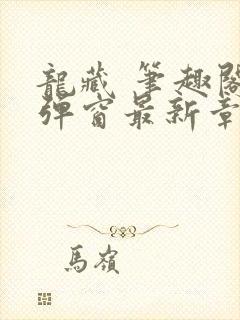 龍藏 筆趣閣
彈窗最新章
馬嶺